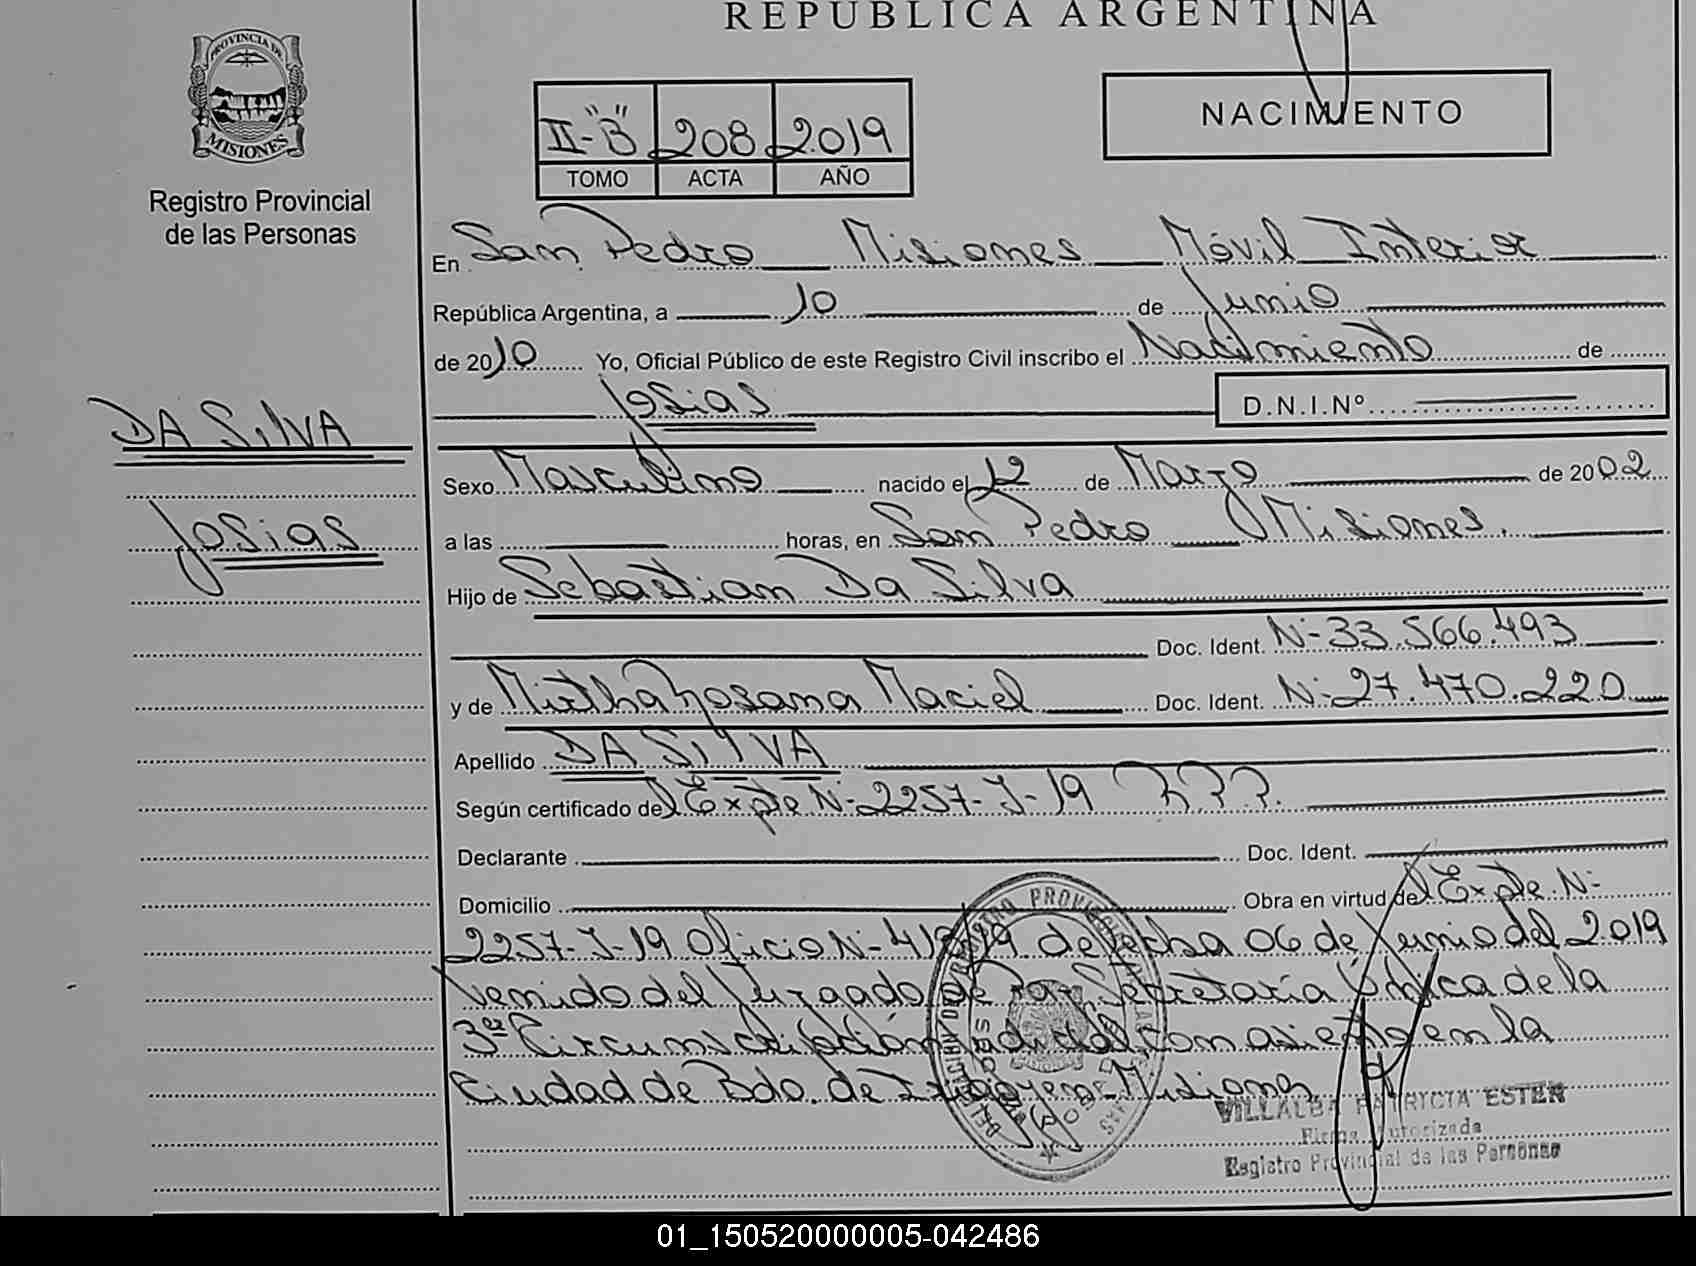 REPUBLICA ARGENTINA
PROVINCIA DE
MISIONES
Registro Provincial
de las Personas
II-"B" 208 2019
TOMO ACTA AÑO
NACIMIENTO
En San Pedro Misiones Móvil Interior
República Argentina, a 10 de Junio
de 2010 Yo, Oficial Público de este Registro Civil inscribo el Nacimiento de
Josias D.N.I.Nº
DA SilVA
Josias
Sexo Masculino nacido el 12 de Marzo de 2002
a las horas, en San Pedro Misiones.
Hijo de Sebastian Da Silva
Doc. Ident. N- 33.566.493
y de Mirtha Rosana Maciel Doc. Ident. N- 27.470.220
Apellido DA SilVA
Según certificado del Expte N- 2257-J-19
Declarante Doc. Ident.
Domicilio Obra en virtud del Expte. N-
2257-J-19 Oficio N- de fecha 06 de Junio del 2019
Venido del Juzgado de Paz Secretaría Única de la
3era Circunscripción Judicial con asiento en la
Ciudad de Bdo. de Irigoyen Misiones
VILLALBA PATRICIA ESTER
Firma Autorizada
Registro Provincial de las Personas
01_150520000005-042486